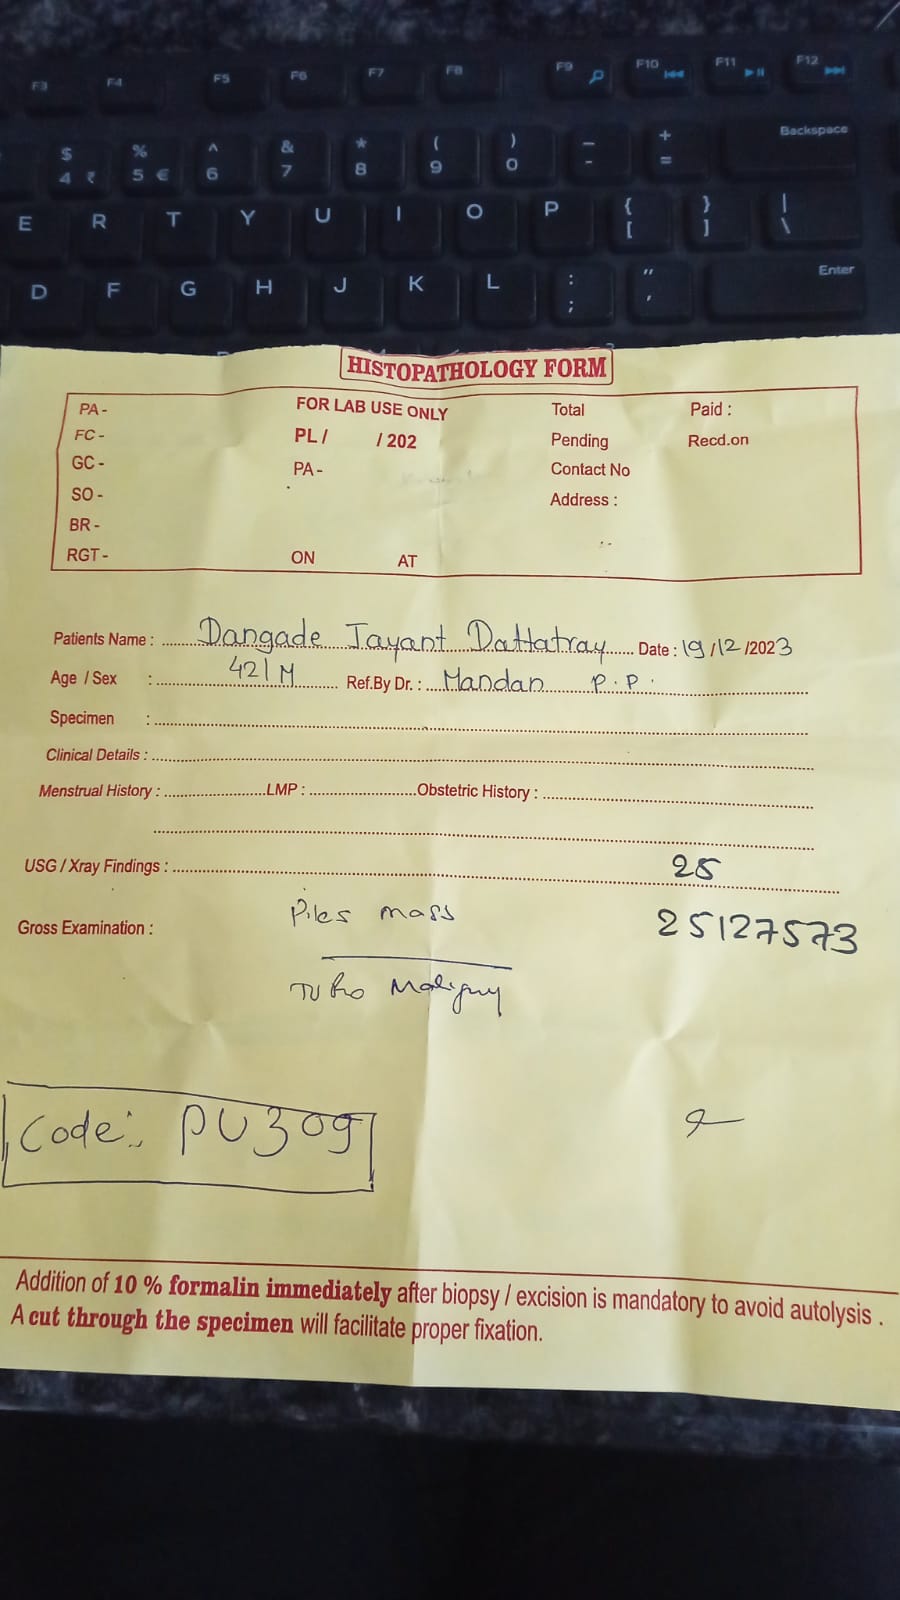 F3 F4 F5 F6 F7 F8 F9 F10 F11 F12
$ % ^ & * ( ) _ + Backspace
4 ₹ 5 € 6 7 8 9 0 - =
E R T Y U I O P { } |
[ ] \
D F G H J K L : " Enter
; '
HISTOPATHOLOGY FORM
PA - FOR LAB USE ONLY Total Paid :
FC - PL / / 202 Pending Recd.on
GC - PA - Contact No
SO - Address :
BR -
RGT - ON AT
Patients Name : Dangade Jayant Dattatray Date : 19 / 12 / 2023
Age / Sex : 42 / M Ref.By Dr. : Mandan P. P.
Specimen :
Clinical Details :
Menstrual History : LMP : Obstetric History :
USG / Xray Findings : 25
Gross Examination : Piles mass 25127573
Code: PU309
Addition of 10 % formalin immediately after biopsy / excision is mandatory to avoid autolysis .
A cut through the specimen will facilitate proper fixation.